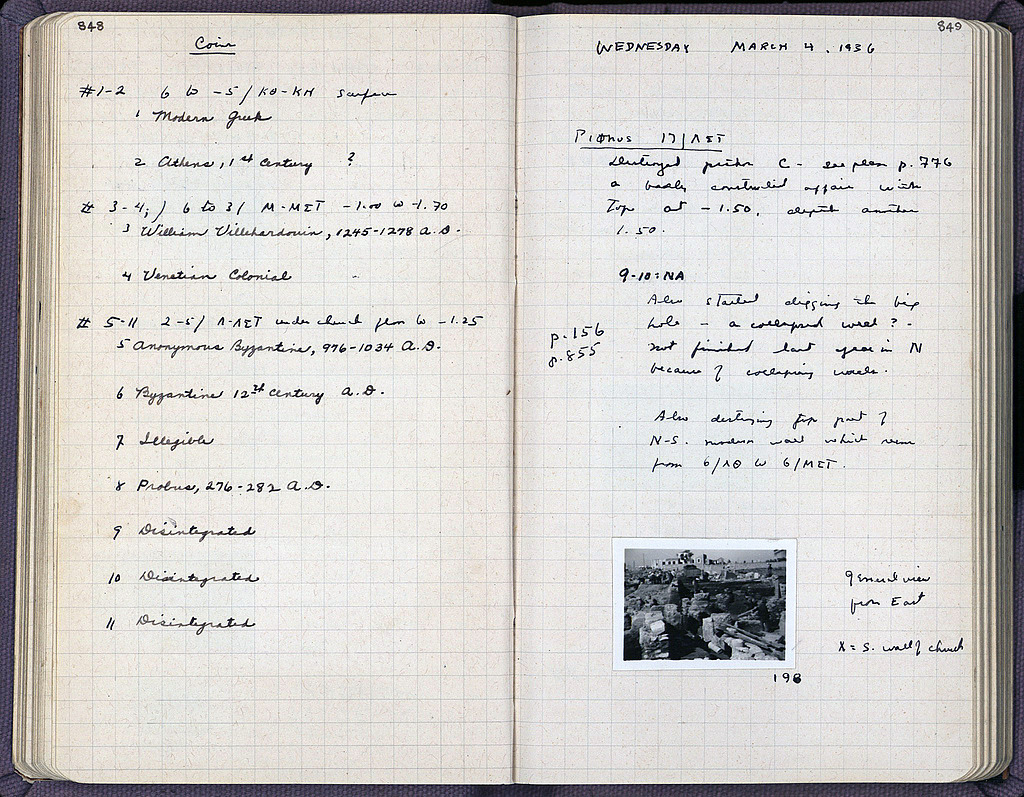 848
Coins
#1-2 6 to -5/ΚΘ-ΚΗ Surface
1 Modern Greek
2 Athens, 1st Century ?
# 3-4; 6 to 3/ Μ-ΜΣΤ -1.00 to -1.70
3 William Villehardouin, 1245-1278 A.D.
4 Venetian Colonial
# 5-11 2-5/ Λ-ΛΣΤ under church floor to -1.25
5 Anonymous Byzantine, 976-1034 A.D.
6 Byzantine 12th Century A.D.
7 Illegible
8 Probus, 276-282 A.D.
9 Disintegrated
10 Disintegrated
11 Disintegrated
849
WEDNESDAY MARCH 4, 1936
17/ΛΣΤ
Destroyed pithos C - see plan p. 776
a badly constructed affair with
Top at -1.50, depth another
1.50.
9-10:NA
Also started digging the big
hole - a collapsed well? -
p. 156
not finished last year in N
p. 855
because of collapsing walls.
Also destroying top part of
N-S. modern wall which runs
from 6/ΛΘ to 6/ΜΣΤ.
General view
from East
X = S. wall of church
198